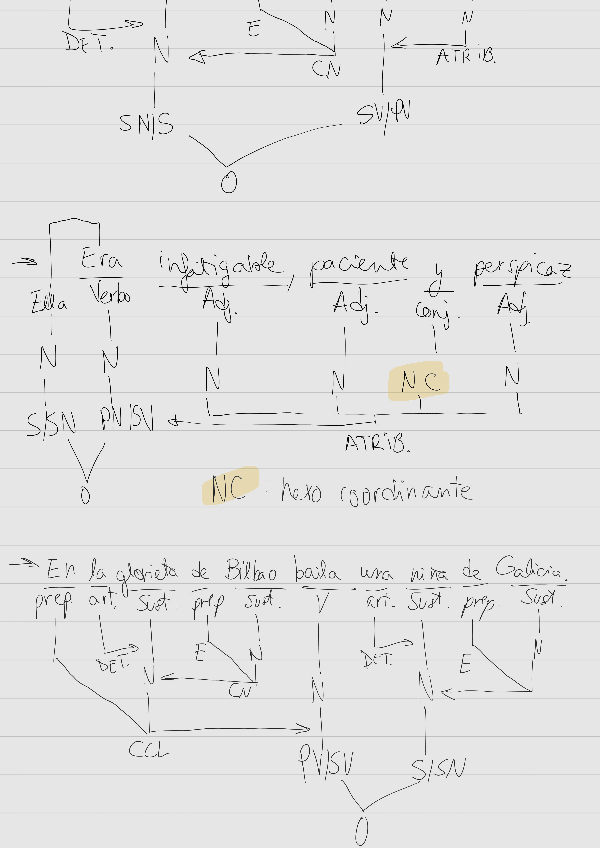 E N N N
DET. N CN ATRIB.
SN/S SV/PV
O
→ Era infatigable, paciente y perspicaz
Ella Verbo Adj. Adj. conj. Adj.
N N N N NC N
S/SN PV/SV
ATRIB.
O NC: nexo coordinante
→ En la glorieta de Bilbao baila una niña de Galicia.
prep. art. Sust. prep Sust. V art. Sust. prep Sust.
DET. E N DET. E N
N CN N N
CCL PV/SV S/SN
O